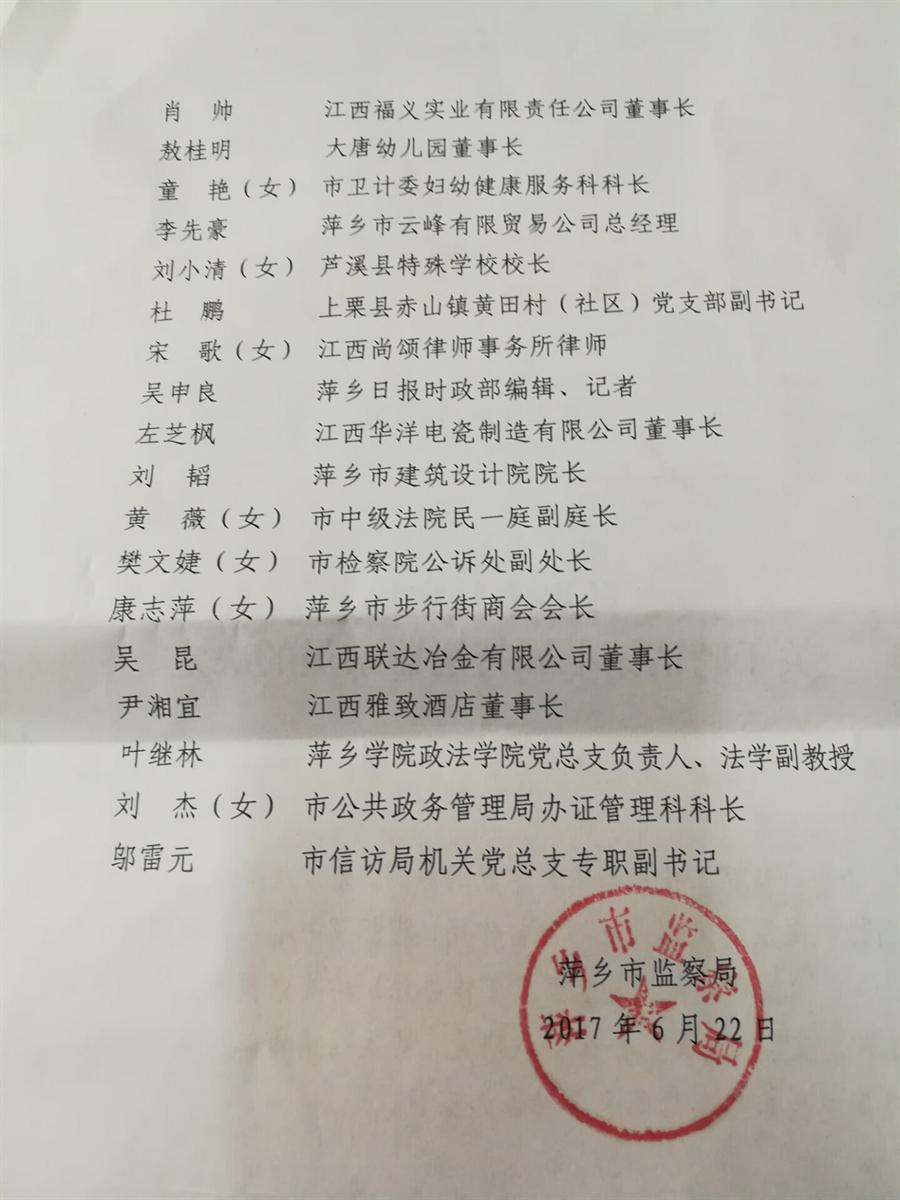 肖　帅　江西福义实业有限责任公司董事长
敖桂明　大唐幼儿园董事长
童　艳（女）市卫计委妇幼健康服务科科长
李先豪　萍乡市云峰有限贸易公司总经理
刘小清（女）芦溪县特殊学校校长
杜　鹏　上栗县赤山镇黄田村（社区）党支部副书记
宋　歌（女）江西尚颂律师事务所律师
吴申良　萍乡日报时政部编辑、记者
左芝枫　江西华洋电瓷制造有限公司董事长
刘　韬　萍乡市建筑设计院院长
黄　薇（女）市中级法院民一庭副庭长
樊文婕（女）市检察院公诉处副处长
康志萍（女）萍乡市步行街商会会长
吴　昆　江西联达冶金有限公司董事长
尹湘宜　江西雅致酒店董事长
叶继林　萍乡学院政法学院党总支负责人、法学副教授
刘　杰（女）市公共政务管理局办证管理科科长
邬雷元　市信访局机关党总支专职副书记
萍乡市监察局
萍乡市监察局
2017年6月22日